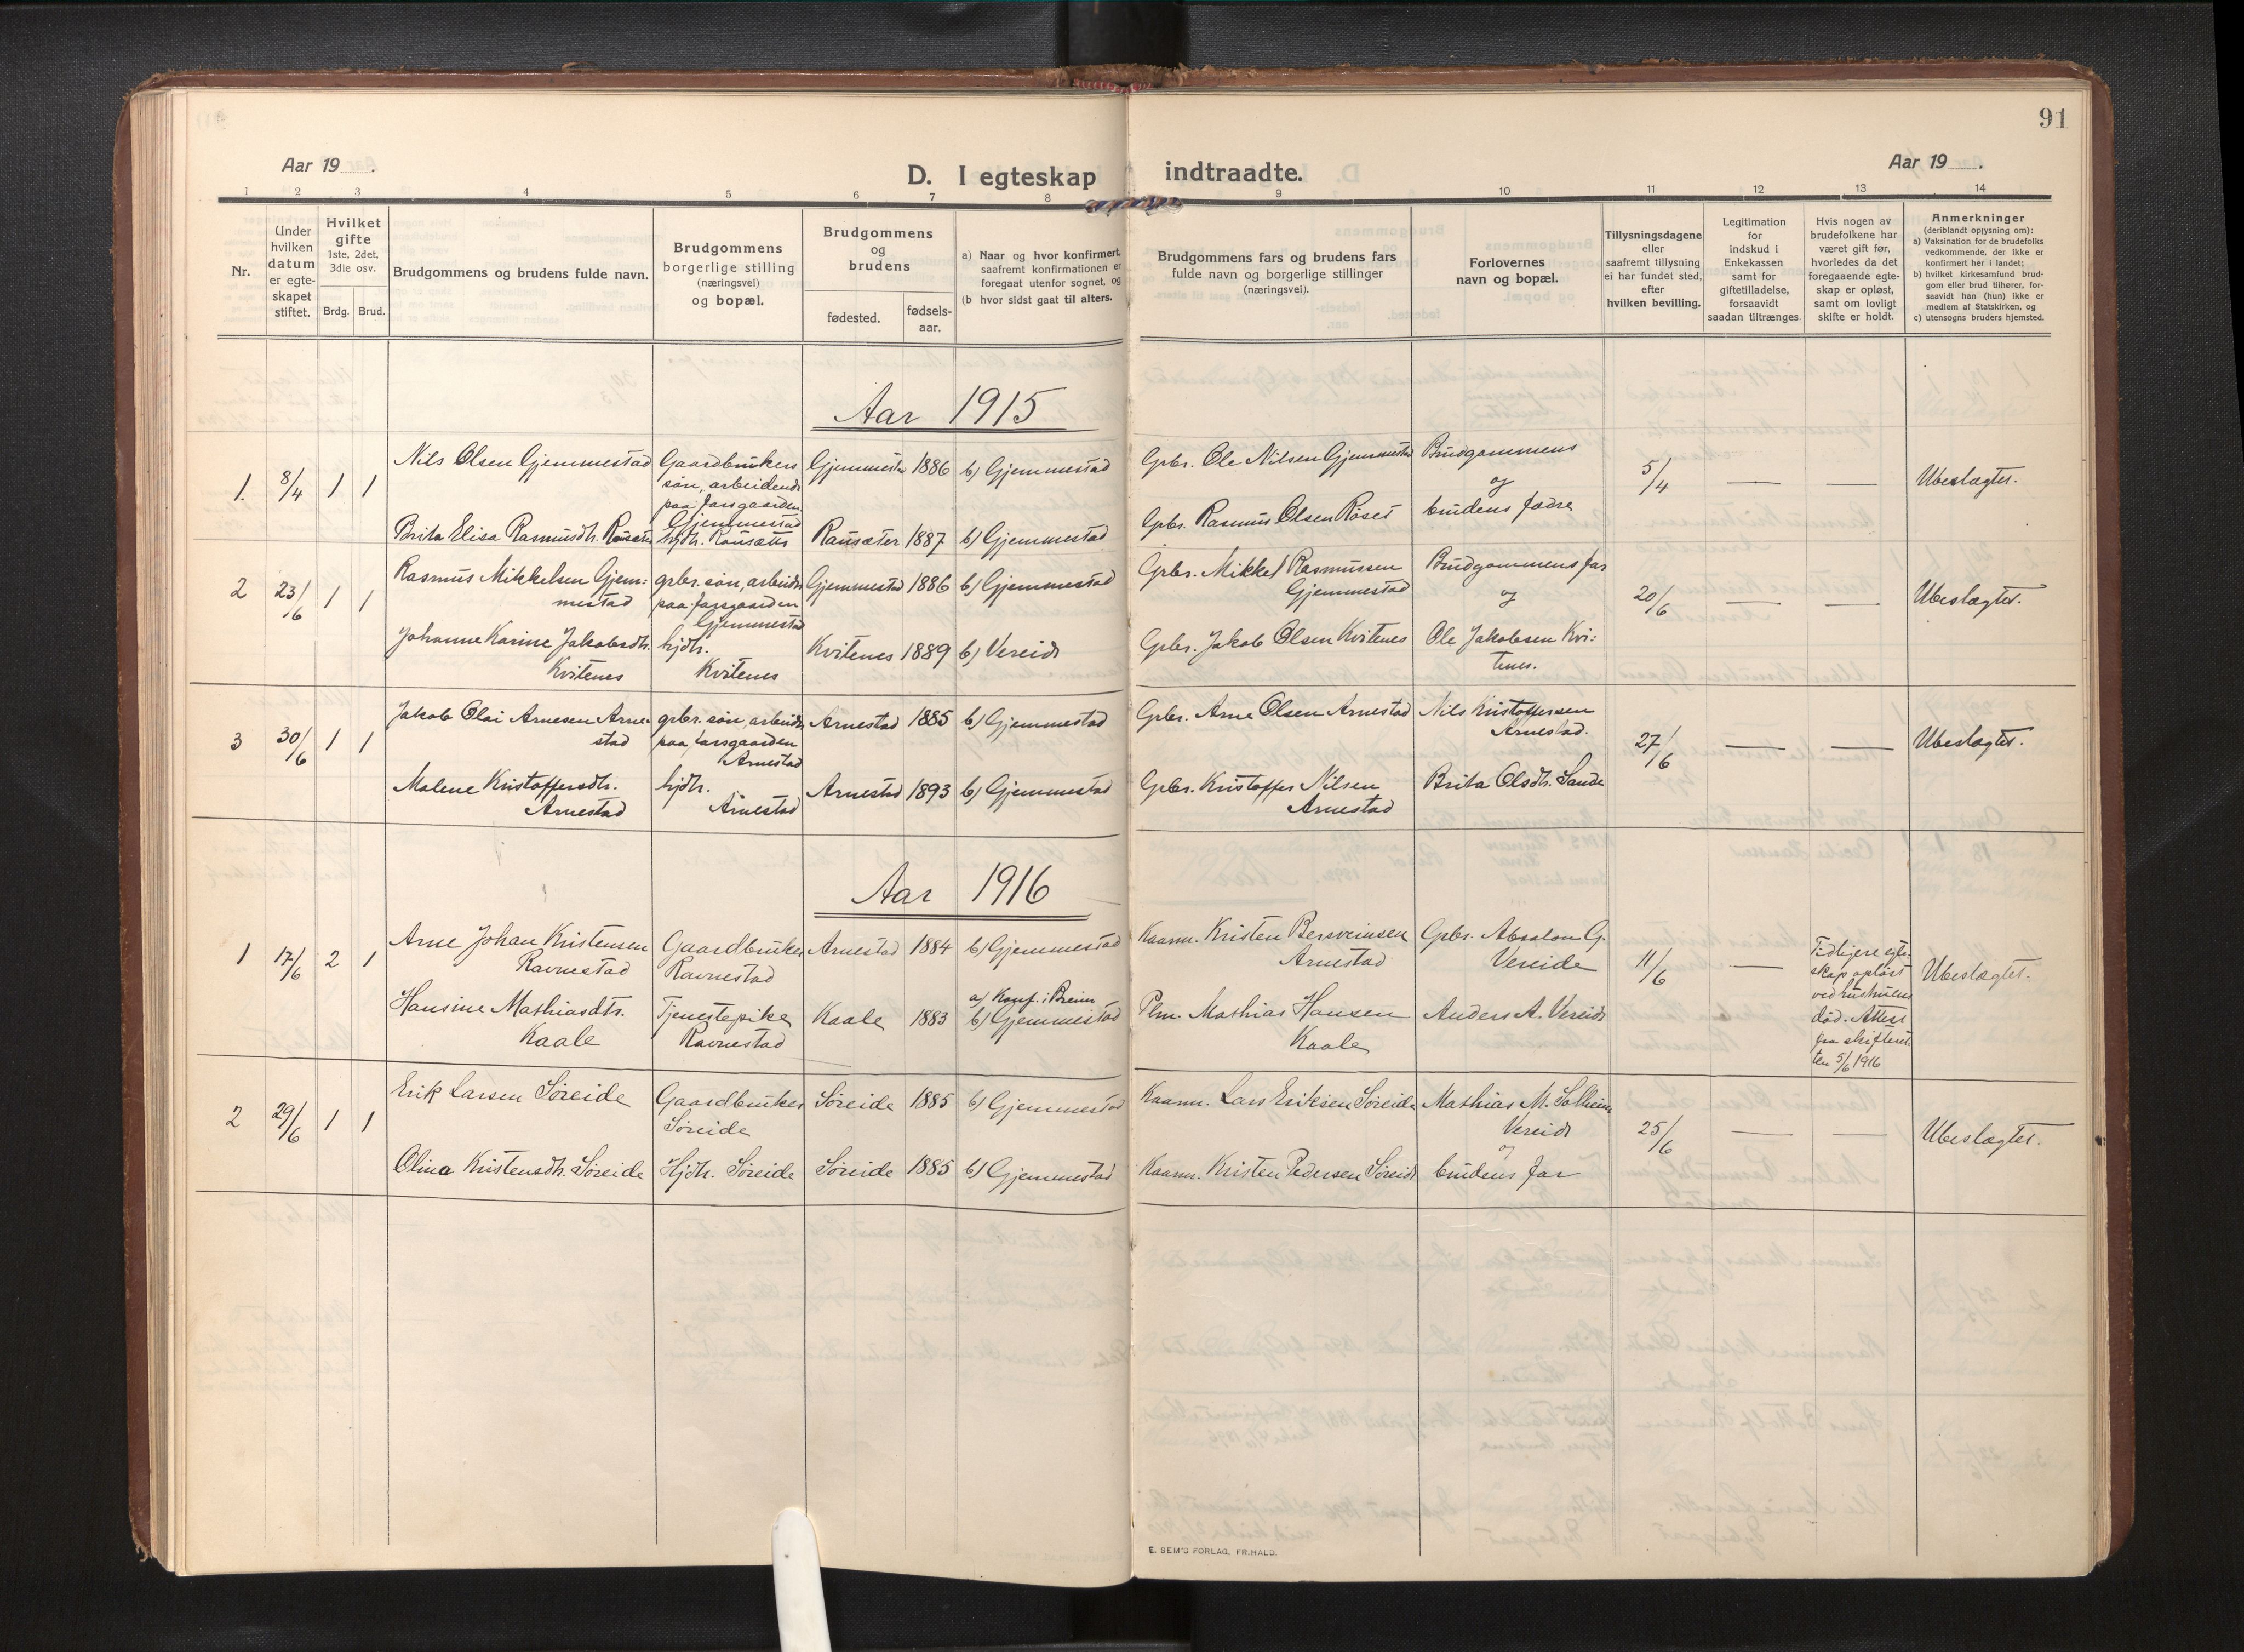 91
Aar 19 .
D. I egteskap indtraadte.
Aar 19 .
1 2 3 4 5 6 7 8 9 10 11 12 13 14
Nr.
Under
hvilken
datum
er egte-
skapet
stiftet.
Hvilket
gifte
1ste, 2det,
3die osv.
Brdg. Brud.
Brudgommens og brudens fulde navn.
Brudgommens
borgerlige stilling
(næringsvei)
og bopæl.
Brudgommens
og
brudens
fødested.
fødsels-
aar.
a) Naar og hvor konfirmert,
saafremt konfirmationen er
foregaat utenfor sognet, og
(b hvor sidst gaat til alters.
Brudgommens fars og brudens fars
fulde navn og borgerlige stillinger
(næringsvei).
Forlovernes
navn og bopæl.
Tillysningsdagene
eller
saafremt tillysning
ei har fundet sted,
efter
hvilken bevilling.
Legitimation
for
indskud i
Enkekassen
samt for
giftetilladelse,
forsaavidt
saadan tiltrænges.
Hvis nogen av
brudefolkene har
været gift før,
hvorledes da det
foregaaende egte-
skap er opløst,
samt om lovligt
skifte er holdt.
Anmerkninger
(deriblandt opjysning om):
a) Vaksination for de brudefolks
vedkommende, der ikke er
konfirmert her i landet;
b) hvilket kirkesamfund brud-
gom eller brud tilhører, for-
saavidt han (hun) ikke er
medlem af Statskirken, og
c) utensogns bruders hjemsted.
Aar 1915
1. 8/4 1 1
Nils Olsen Gjemmestad
Gaardbrukers
søn, arbeidende
paa farsgaarden
Gjemmestad
Gjemmestad 1886 b) Gjemmestad
Gpbr. Ole Nilsen Gjemmestad
Brudgommens
og
brudens fædre
5/4 — — Ubeslægtet.
Brita Elisa Rasmusdtr. Rausæter
hjdtr. Rausætr
Rausæter 1887 b) Gjemmestad
Gpbr. Rasmus Olsen Røset
2 23/6 1 1
Rasmus Mikkelsen Gjem:
mestad
gpbr. søn, arbeider
paa farsgaarden
Gjemmestad
Gjemmestad 1886 b) Gjemmestad
Gpbr. Mikkel Rasmussen
Gjemmestad
Brudgommens far
og
20/6 — — Ubeslægtet.
Johanne Karine Jakobsdtr.
Kvitenes
hjdtr.
Kvitenes
Kvitenes 1889 b) Vereide
Gpbr. Jakob Olsen Kvitenes
Ole Jakobsen Kvi:
tenes.
3 30/6 1 1
Jakob Olai Arnesen Arne-
stad
gpbr. søn, arbeider
paa farsgaarden
Arnestad
Arnestad 1885 b) Gjemmestad
Gpbr. Arne Olsen Arnestad
Nils Kristoffersen
Arnestad.
27/6 — — Ubeslægtet.
Malene Kristoffersdtr.
Arnestad
hjdtr.
Arnestad
Arnestad 1893 b) Gjemmestad
Gpbr. Kristoffer Nilsen
Arnestad
Brita Olsdtr. Sande
Aar 1916
1 17/6 2 1
Arne Johan Kristensen
Ravnestad
Gaardbruker
Ravnestad
Arnestad 1884 b) Gjemmestad
Kaarm. Kristen Bersveinsen
Arnestad
Gpbr. Absalon G.
Vereide
11/6 —
Tidligere egte-
skap opløst
ved hustruens
død. Attest
fra skifteret-
ten 5/6 1916
Ubeslægtet.
Hansine Mathiasdtr.
Kaale
Tjenestepike
Ravnestad
Kaale 1883
a) Konf. i Breim
b) Gjemmestad
Plm. Mathias Hansen
Kaale
Anders A. Vereide
2 29/6 1 1
Erik Larsen Søreide
Gaardbruker
Søreide
Søreide 1885 b) Gjemmestad
Kaarm. Lars Eriksen Søreide
Mathias M. Solheim
Vereide
og
25/6 — — Ubeslægtet.
Olina Kristensdtr. Søreide
Hjdtr. Søreide
Søreide 1885 b) Gjemmestad
Kaarm. Kristen Pedersen Søreide
brudens far
E. SEM'S FORLAG, FR.HALD.